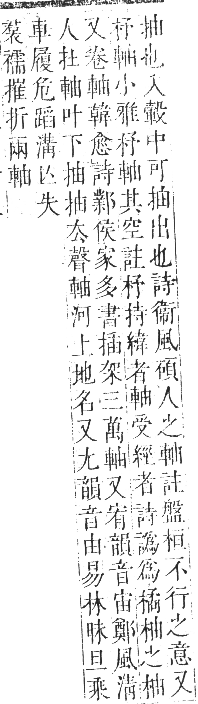 抽也入轂中可抽出也詩衞風碩人之軸註盤桓不行之意又
杼軸小雅杼軸其空註杼持緯者軸受經者詩譌為橘柚之柚
又卷軸韓愈詩鄴侯家多書揷架三萬軸又宥韻音宙鄭風淸
人扗軸叶下抽抽厺聲軸河上地名又尤韻音由易林昧旦乘
車履危蹈溝亾失
裘襦摧折兩軸